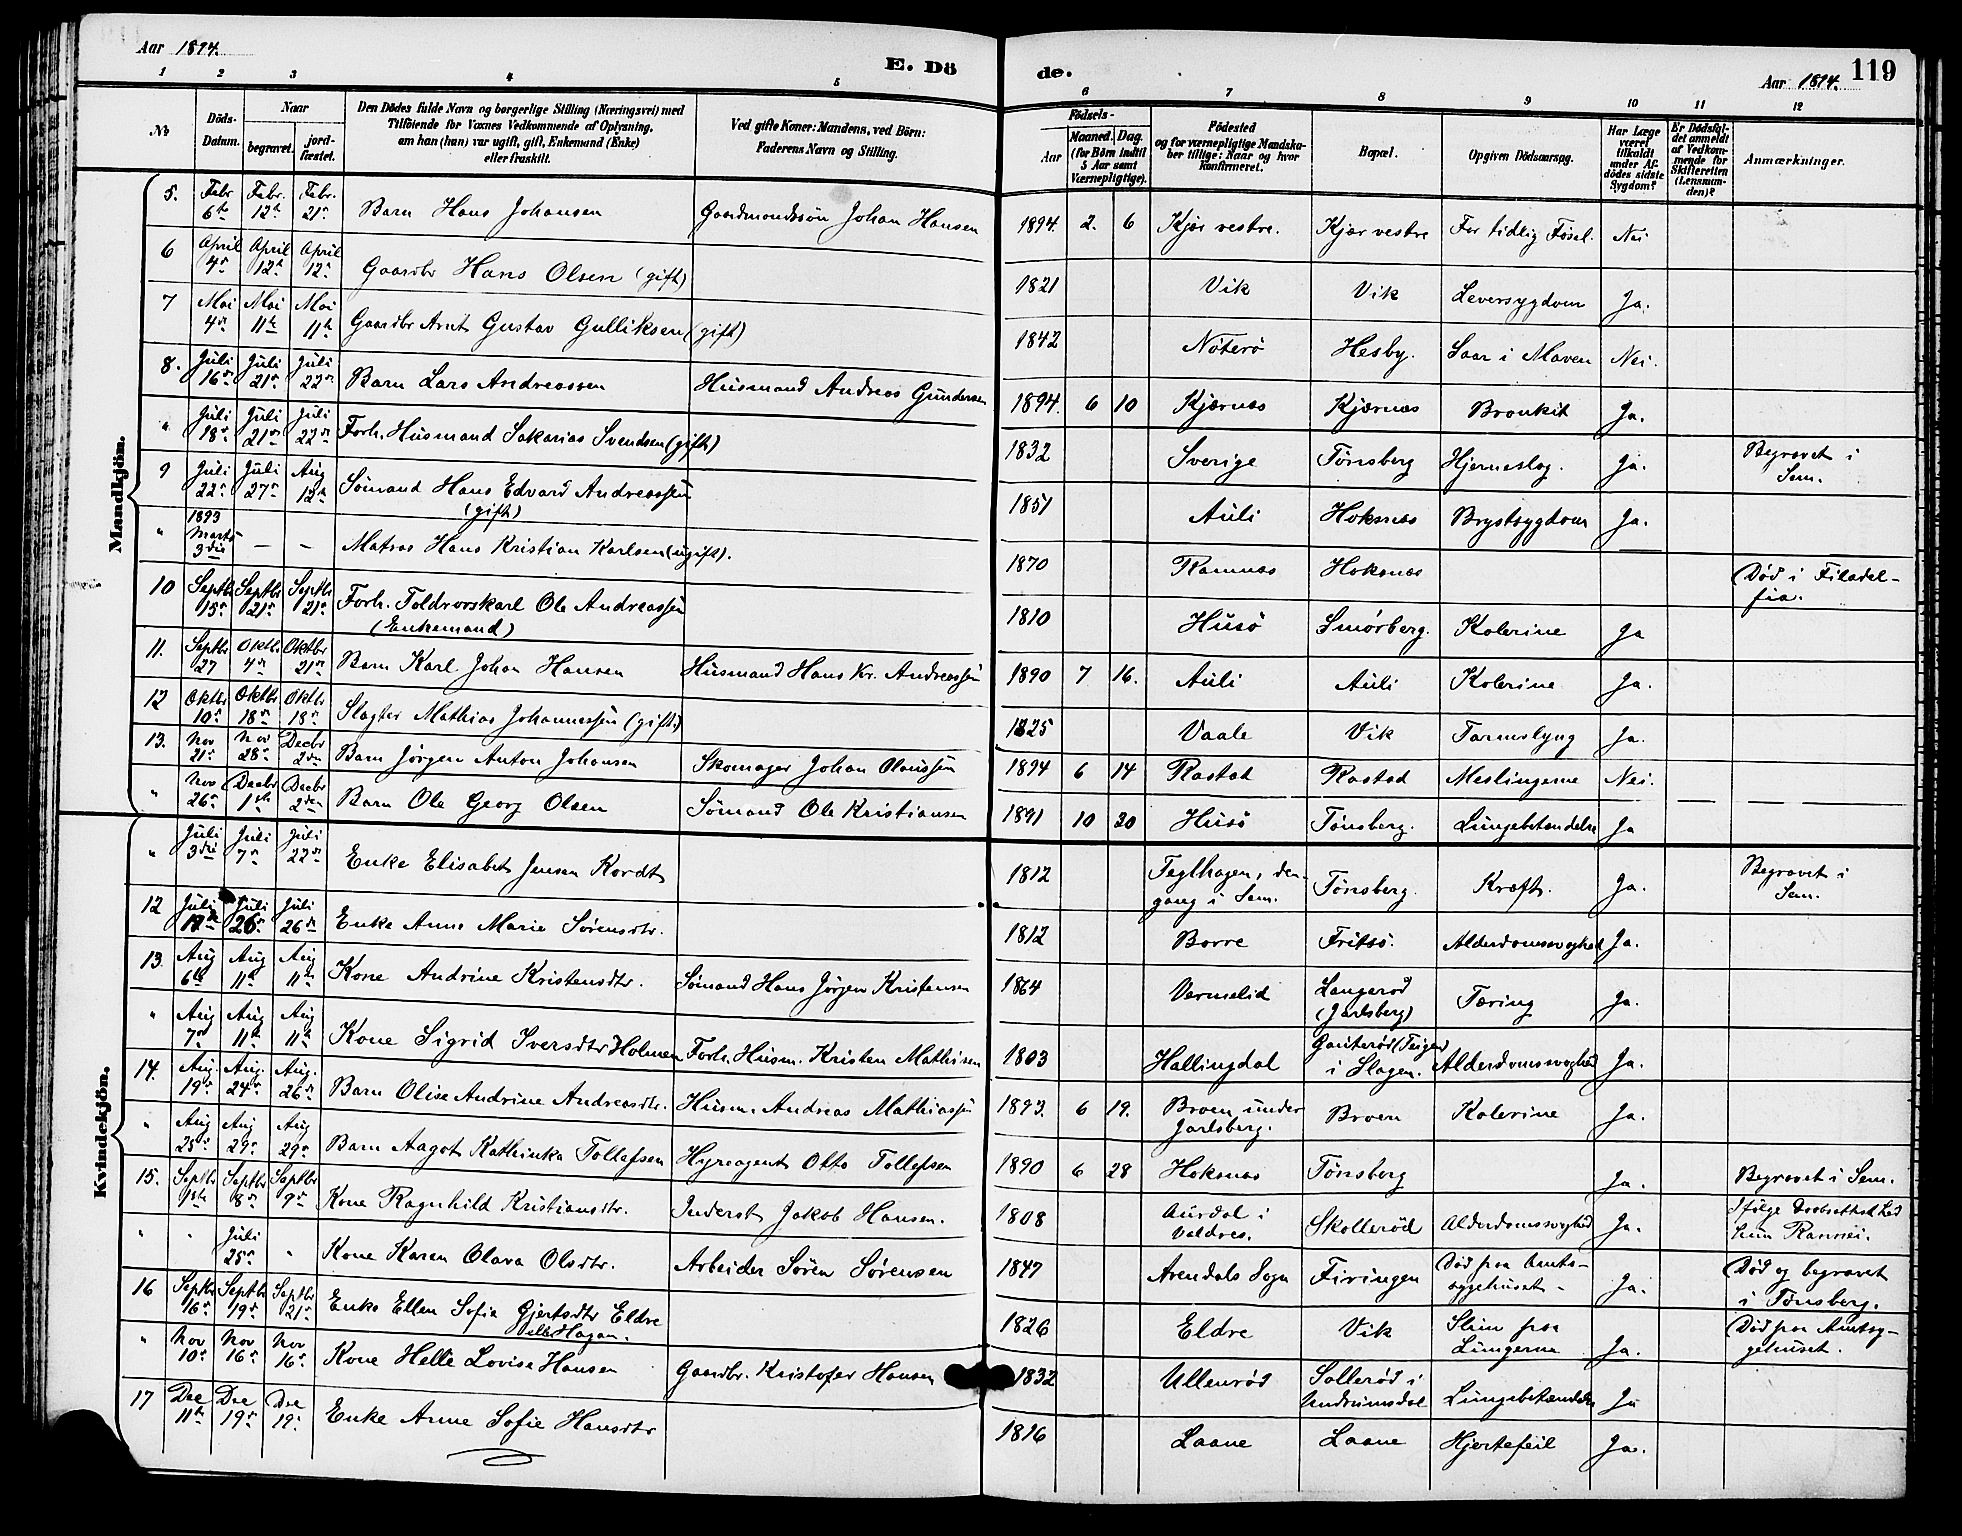 Aar 1894. E. Dö de. Aar 1894. 119
1 2 3 4 5 6 7 8 9 10 11 12
No
Döds-Datum.
Naar
begravet.
jord-fæstet.
Den Dödes fulde Navn og borgerlige Stilling (Næringsvei) med
Tilföiende for Voxnes Vedkommende af Oplysning,
om han (hun) var ugift, gift, Enkemand (Enke)
eller fraskilt.
Ved gifte Koner: Mandens, ved Börn:
Faderens Navn og Stilling.
Födsels-
Aar
Maaned. Dag.
(for Börn indtil
5 Aar samt
Værnepligtige).
Födested
og for værnepligtige Mandska-
ber tillige: Naar og hvor
konfirmeret.
Bopæl.
Opgiven Dödsaarsag.
Har Læge
været
tilkaldt
under Af-
dödes sidste
Sygdom?
Er Dödsfal-
det anmeldt
af Vedkom-
mende for
Skifteretten
(Lensman-
den)?
Anmærkninger.
Mandkjön.
5. Febr 6te Febr. 12te Febr. 21de Barn Hans Johansen Gaardmandssön Johan Hansen 1894. 2. 6 Kjær vestre. Kjær vestre For tidlig Føsel. Nei
6 April 4de April 12te April 12te Gaardbr Hans Olsen (gift) 1821 Vik Vik Leversygdom Ja.
7 Mai 4de Mai 11te Mai 11te Gaardbr Arnt Gustav Gulliksen (gift) 1842 Nöterö Hesby. Saar i Maven Nei.
8. Juli 16de Juli 21de Juli 22de Barn Lars Andreassen Husmand Andreas Gundersen 1894. 6 10 Kjærnes Kjærnes Bronkit Ja.
" Juli 18de Juli 21de Juli 22de Forh. Husmand Sakarias Svendsen (gift) 1832 Sverige Tønsberg Hjerneslag. Ja. Begravet i
Sem.
9 Juli 22de Juli 27de Aug 12te Sömand Hans Edvard Andreassen
(gift) 1851 Auli Hoksnes Brystsygdom Ja.
" 1893 Marts 3die — — Matros Hans Kristian Karlsen (ugift). 1870 Ramnes Hoksnes Død i Filadel-
fia.
10 Septbr 15de Septbr 21de Septbr 21de Forh. Toldrorskarl Ole Andreassen
(Enkemand) 1810 Husö Smörberg. Kolerine Ja
11. Septbr 27 Oktbr 4de Oktbr 21de Barn Karl Johan Hansen Husmand Hans Kr. Andreassen 1890 7 16. Auli Auli Kolerine Ja.
12 Oktbr 10de Oktbr 18de Oktbr 18de Slagter Mathias Johannessen (gift.) 1825 Vaale Vik Tarmslyng Ja.
13. Nov 21de Nov 28de Decbr 2den Barn Jørgen Anton Johansen Skomager Johan Olaussen 1894 6 14 Rastad Rastad Meslingerne Nei.
" Nov 26de Decbr 1ste Decbr 2den Barn Ole Georg Olsen Sømand Ole Kristiansen 1891 10 30 Husö Tønsberg. Lungebetændelse Ja
Kvindekjön.
" Juli 3die Juli 7de Juli 22de Enke Elisabet Jensen Kordt 1812 Teglhagen, den-
gang i Sem. Tønsberg. Kræft. Ja. Begravet i
Sem.
12 Juli Juli 26de Juli 26de Enke Anne Marie Sørensdtr. 1812 Borre Fritsö. Alderdomssvaghed Ja.
13. Aug 6te Aug 11te Aug 11te Kone Andrine Kristensdtr. Sömand Hans Jørgen Kristensen 1864 Vermelid Langerød
(Jarlsberg) Tæring Ja.
" Aug 7de Aug 11te Aug 11te Kone Sigrid Iversdtr Holmen Forh. Husm. Kristen Mathisen 1803 Hallingdal Gauterød (Teigen)
i Slagen. Alderdomssvaghed Ja.
14. Aug. 19de Aug. 24de Aug. 26de Barn Olise Andrine Andreasdtr. Husm. Andreas Mathiassen 1893. 6 19. Broen under
Jarlsberg. Broen Kolerine Ja.
" Aug 25de Aug 29de Aug 29de Barn Aagot Kathinka Tollefsen Hyreagent Otto Tollefsen 1890 6 28 Hoksnes Tønsberg Ja. Begravet i Sem.
15. Septbr 1ste Septbr 8de Septbr 9de Kone Ragnhild Kristiansdtr. Inderst Jakob Hansen. 1808 Aurdal i
Valdres. Skallerød Alderdomssvaghed Ja. Ifølge Daabsattest hed
hun Rannei.
" " Juli 25de " Kone Karen Olava Olsdtr. Arbeider Sören Sørensen 1847 Arendals Sogn Firingen Død paa Amts-
sygehuset - Ja. Død og begravet
i Tønsberg.
16 Septbr 16de Septbr 19de Septbr 21de Enke Ellen Sofie Gjertsdtr Eldre
ell. Hagan. 1826 Eldre Vik Slim paa
Lungerne Ja. Død paa Amtsy-
gehuset.
" Nov 10de Nov 16de Nov 16de Kone Helle Lovise Hansen Gaardbr. Kristofer Hansen 1832 Ullenrød Sollerød i
Undrumsdal Lungebetændelse Ja
17 Dec 11te Dec 19de Dec 19de Enke Anne Sofie Hansdtr 1816 Laane Laane Hjertefeil Ja.